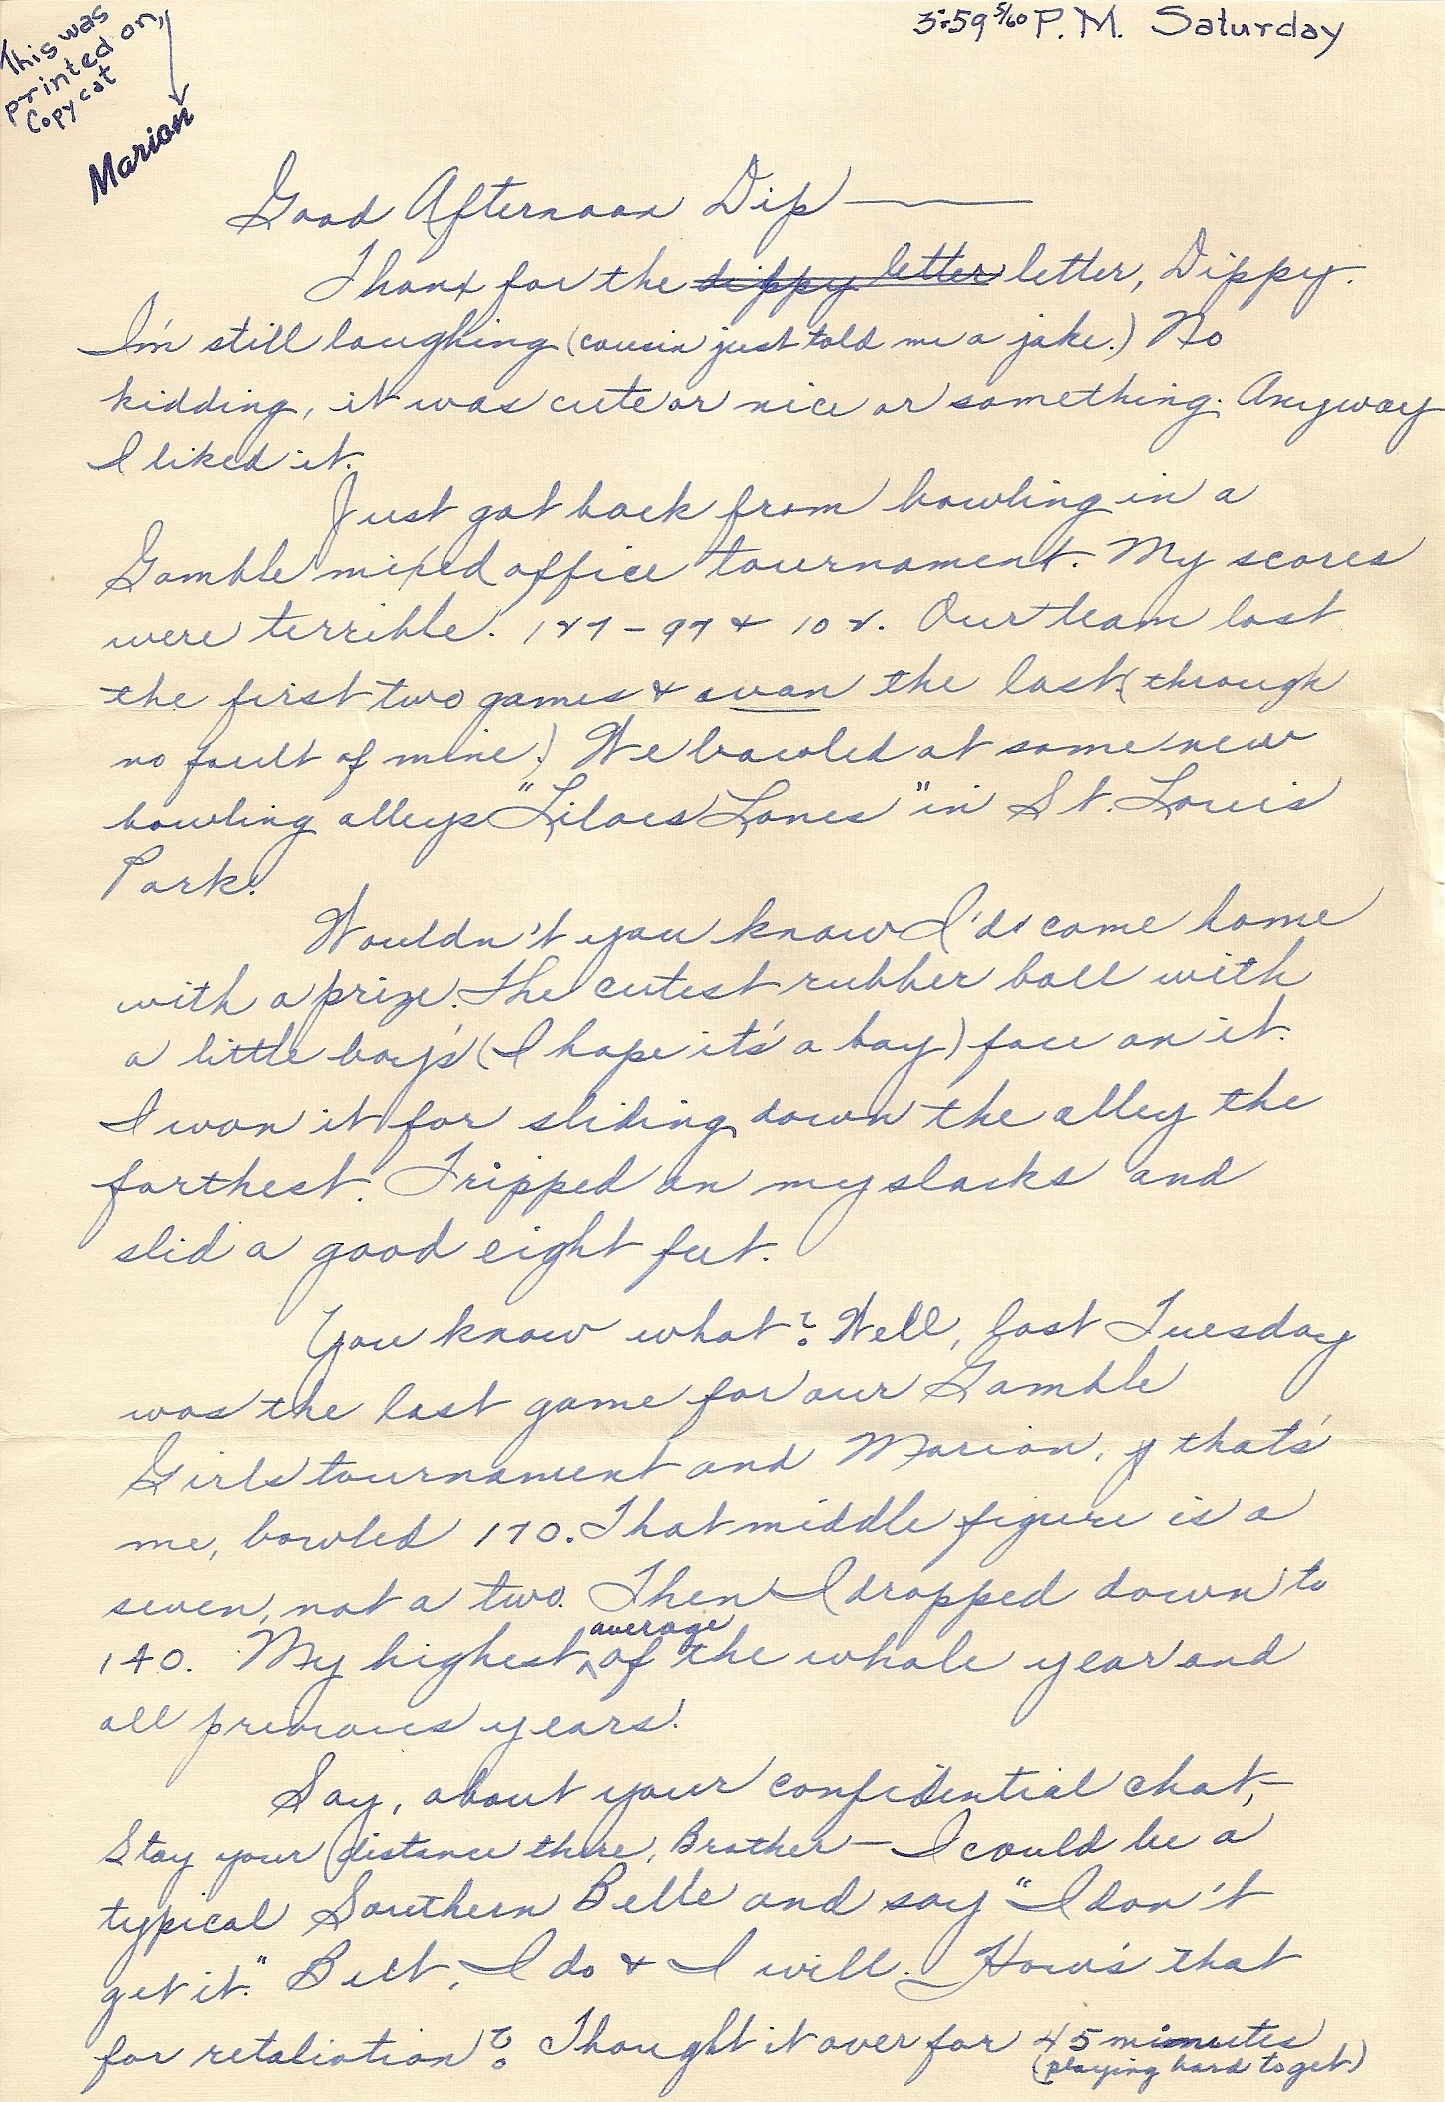 3:59 5/60 P.M. Saturday
This was
printed on
Copycat
Marion
Good Afternoon Dip
Thanx for the dippy letter letter, Dippy.
I'm still laughing (cousin just told me a joke.) No
kidding, it was cute or nice or something. Anyway
I liked it.
Just got back from bowling in a
Gamble mixed office tournament. My scores
were terrible. 127 - 97 & 102. Our team lost
the first two games & won the last (through
no fault of mine.) We bowled at some new
bowling alleys "Lilacs Lanes" in St. Louis
Park.
Wouldn't you know I'd come home
with a prize. The cutest rubber ball with
a little boy's (I hope it's a boy) face on it.
I won it for sliding down the alley the
farthest. Tripped on my slacks and
slid a good eight feet.
You know what? Well, last Tuesday
was the last game for our Gamble
Girls tournament and Marion, that's
me, bowled 170. That middle figure is a
seven, not a two. Then I dropped down to
140. My highest average of the whole year and
all previous years!
Say, about your confidential chat,—
Stay your distance there, Brother — I could be a
typical Southern Belle and say "I don't
get it." But, I do & I will. How's that
for retaliation? Thought it over for 45 minutes
(playing hard to get)